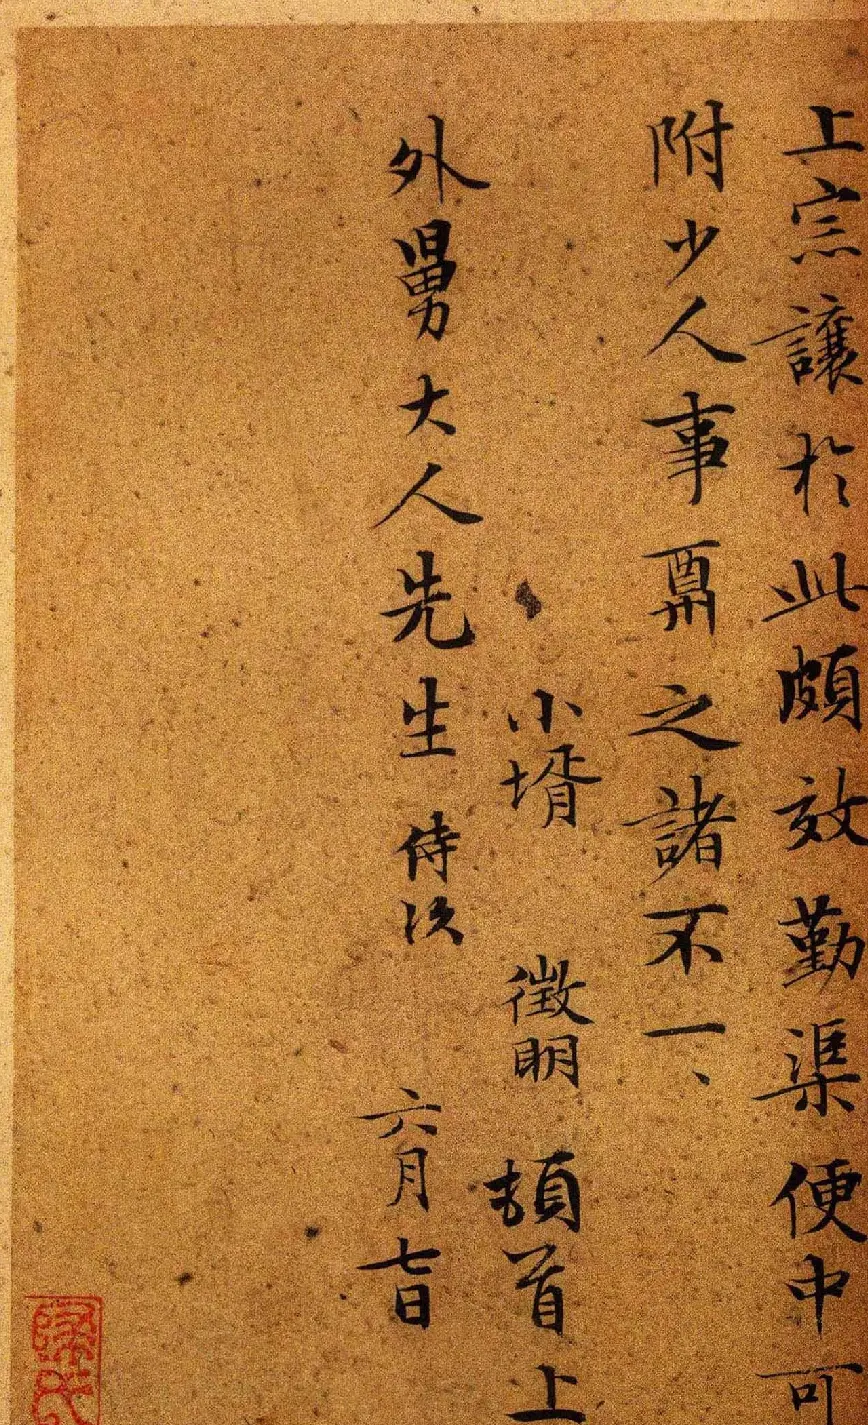 上宗讓於此頗效勤渠便中可
附少人事與之諸不一一
小壻徵明頓首上
外舅大人先生侍次 六月七日